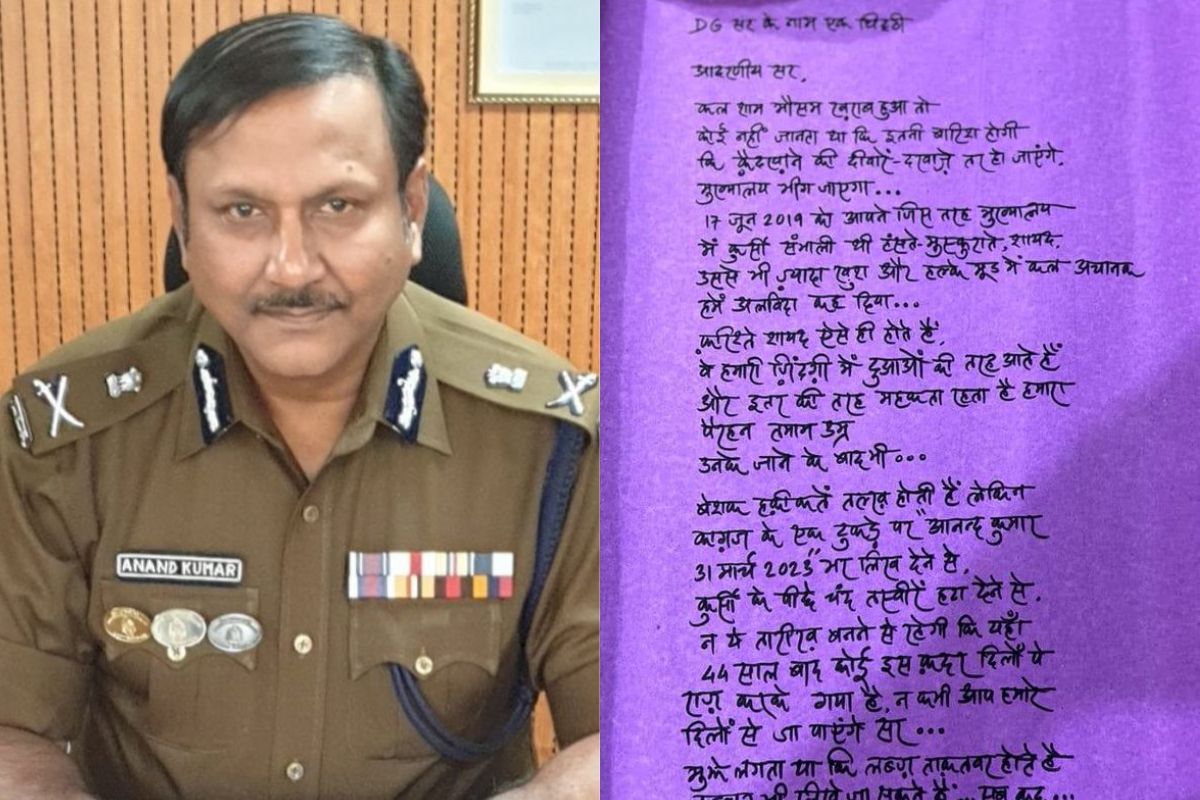 ANAND KUMAR
DG सर के नाम एक चिट्ठी
आदरणीय सर,
कल शाम मौसम ख़राब हुआ तो
कोई नहीं जानता था कि इतनी बारिश होगी
कि क़ैदखाने की दीवारें-दरवाज़े तर हो जाएंगे,
मुख्यालय भीग जाएगा...
17 जून 2019 को आपने जिस तरह मुख्यालय
में कुर्सी संभाली थी हंसते-मुस्कुराते, शायद,
उससे भी ज़्यादा खुश और हल्के मूड में कल अचानक
हमें अलविदा कह दिया...
फ़रिश्ते शायद ऐसे ही होते हैं,
वे हमारी ज़िंदगी में दुआओं की तरह आते हैं
और इतर की तरह महकता रहता है हमारा
पैरहन तमाम उम्र
उनके जाने के बाद भी...
बेशक हक़ीकतें तल्ख़ होती हैं लेकिन
काग़ज के एक टुकड़े पर "आनन्द कुमार
31 मार्च 2023" भर लिख देने से,
कुर्सी के पीछे चंद तस्वीरें हटा देने से,
न ये तारीख़ बनने से रहेगी कि यहाँ
44 साल बाद कोई इस क़दर दिलों पे
राज़ करके गया है, न कभी आप हमारे
दिलों से जा पाएंगे सर...
मुझे लगता था कि लफ़्ज़ ताक़तवर होते हैं
भी लिखे जा सकते हैं... सब कुछ...